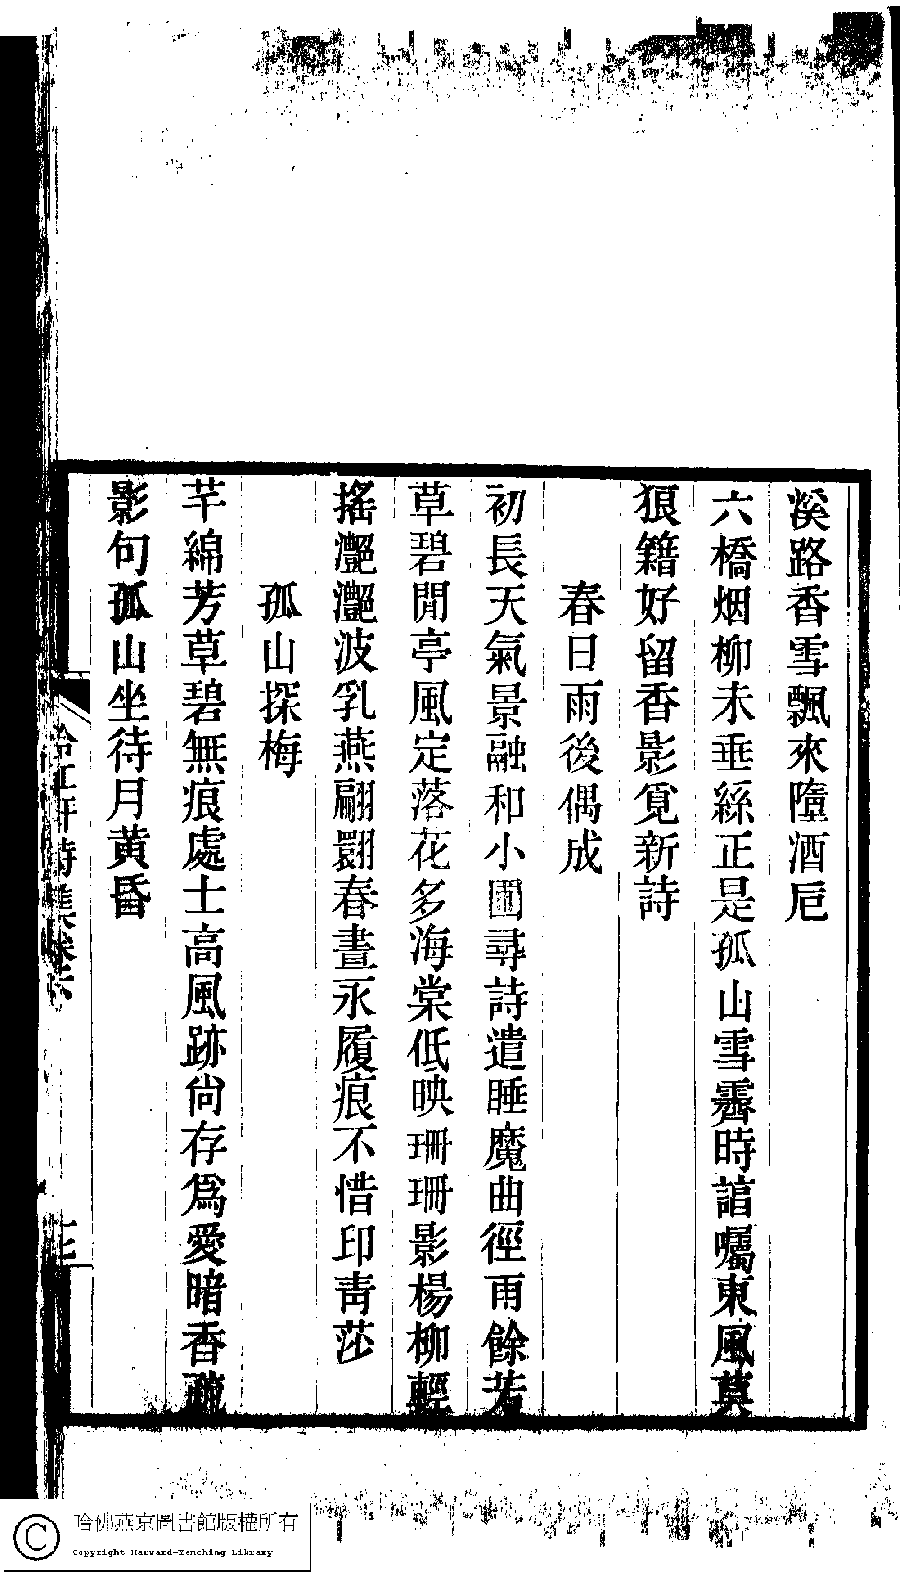 溪路香雪飄來墮酒卮
六橋烟柳未垂絲正是孤山雪霽時諳囑東風莫
狼籍好留香影覓新詩
春日雨後偶成
初長天氣景融和小圃尋詩遣睡魔曲徑雨餘芳
草碧閒亭風定落花多海棠低映珊珊影楊柳輕
搖灔灔波乳燕翩翾春晝永履痕不惜印青莎
孤山探梅
芊綿芳草碧無痕處士高風跡尙存爲愛暗香疏
影句孤山坐待月黃昏
軒詩集卷
哈佛燕京圖書館版權所有
Copyright Harvard-Yenching Library